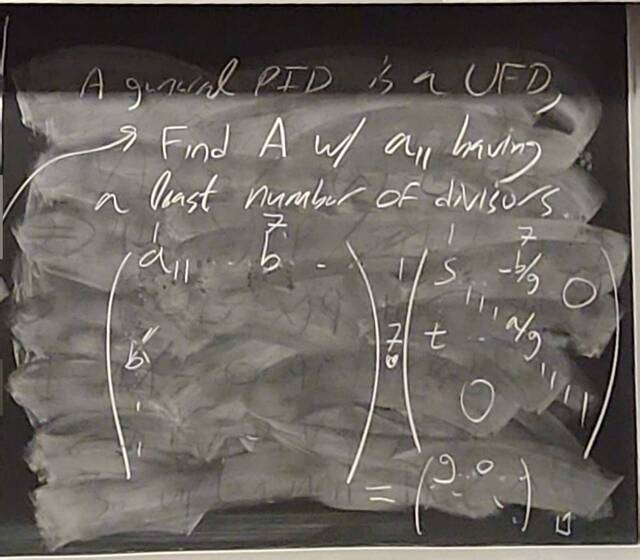 A general PID is a UFD,
→ Find A w/ a₁₁ having
a least number of divisors.
1 7 1 7
( a₁₁ .. b .. ) 1 ( s -b/g 0
b' 7 t .. a/g
0
= ( g .. 0 .. )